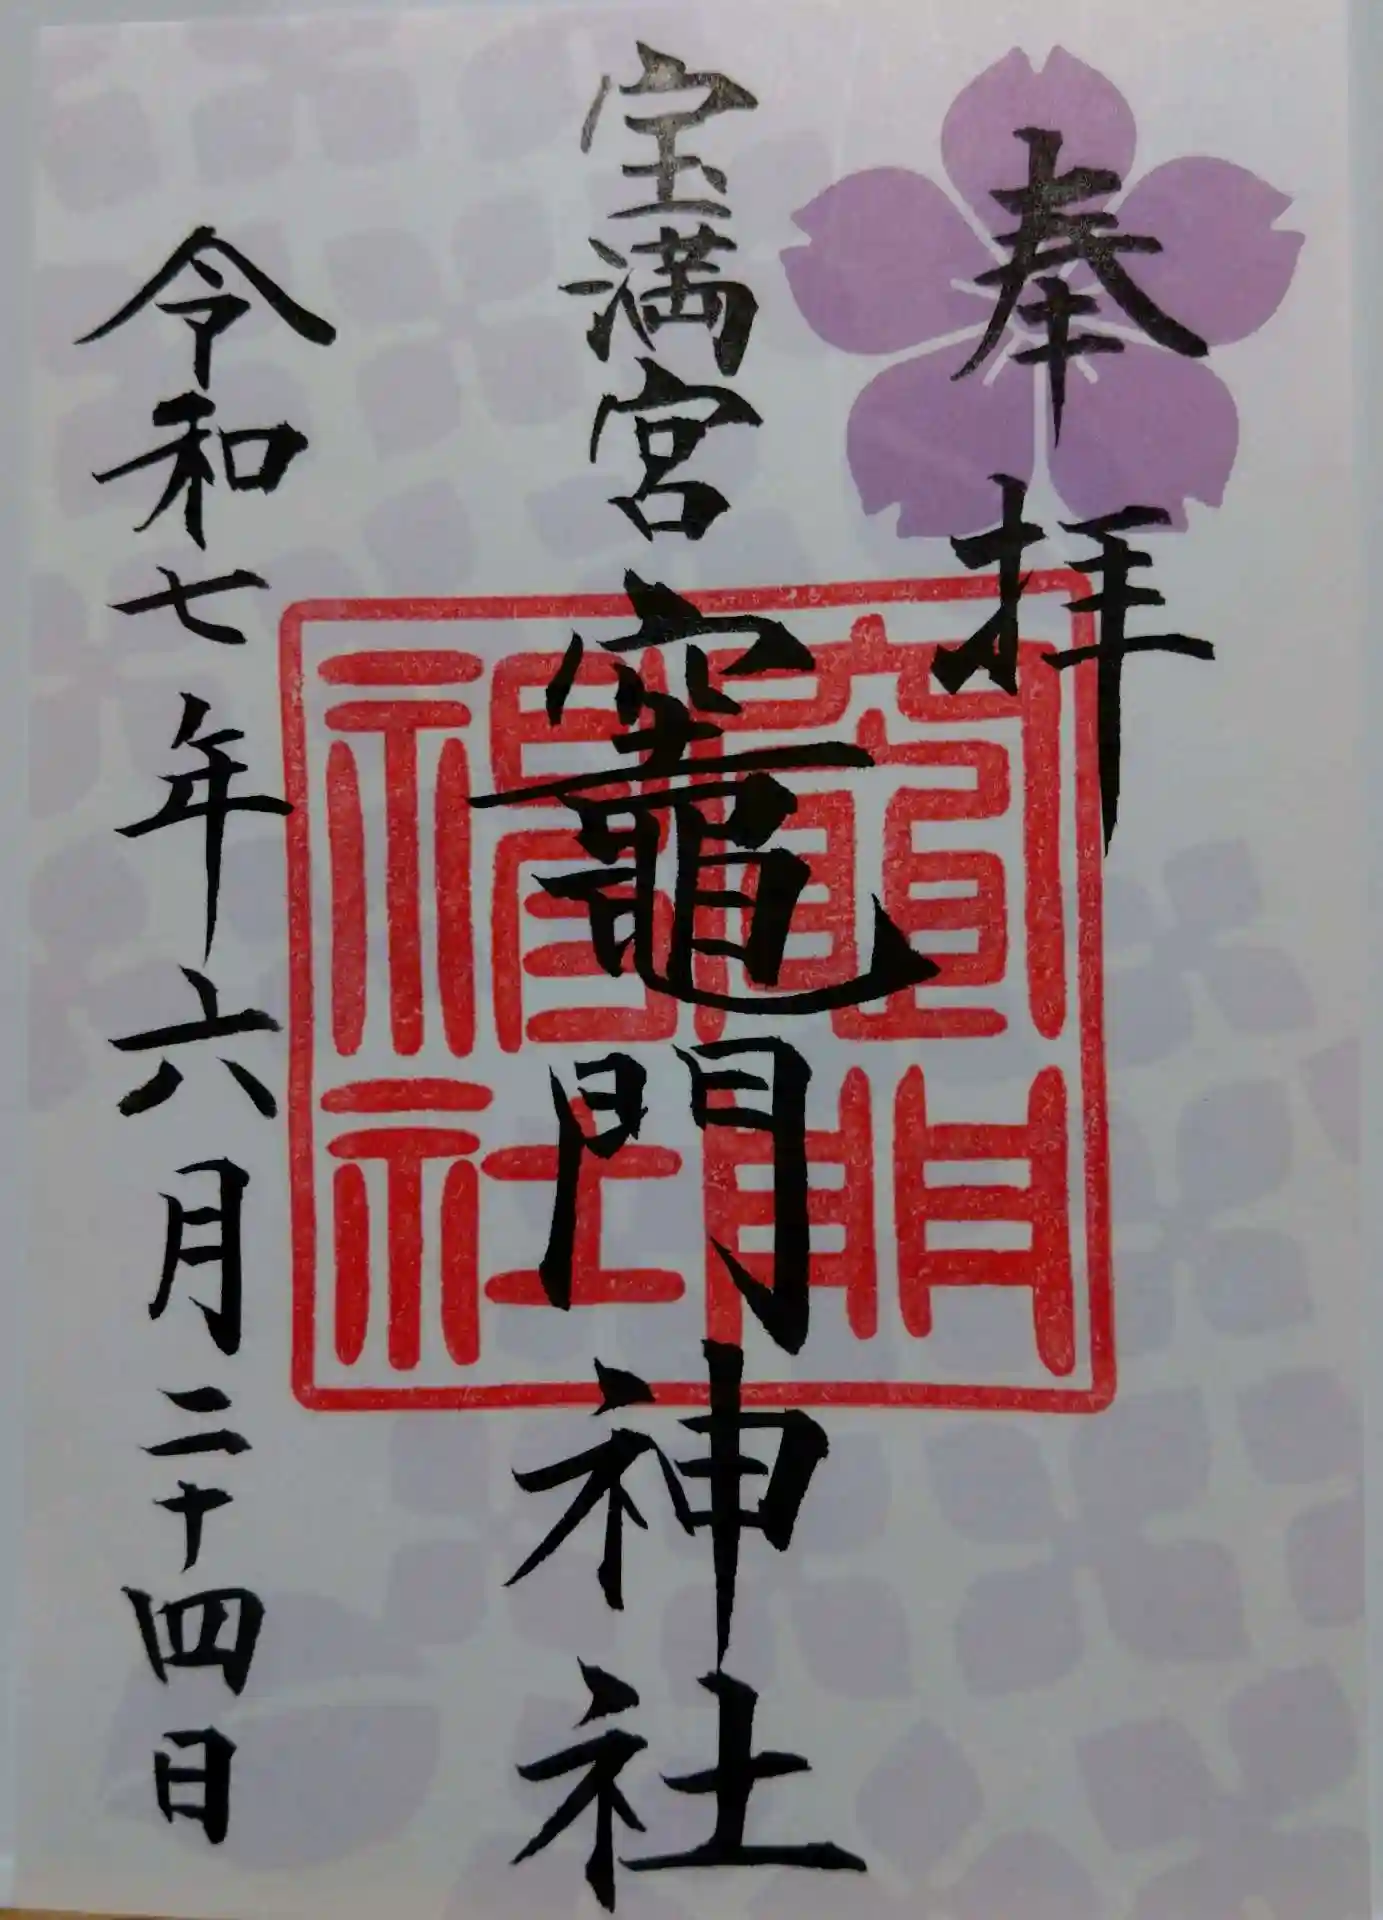 奉拝
宝満宮竈門神社
令和七年六月二十四日
竈門
神社